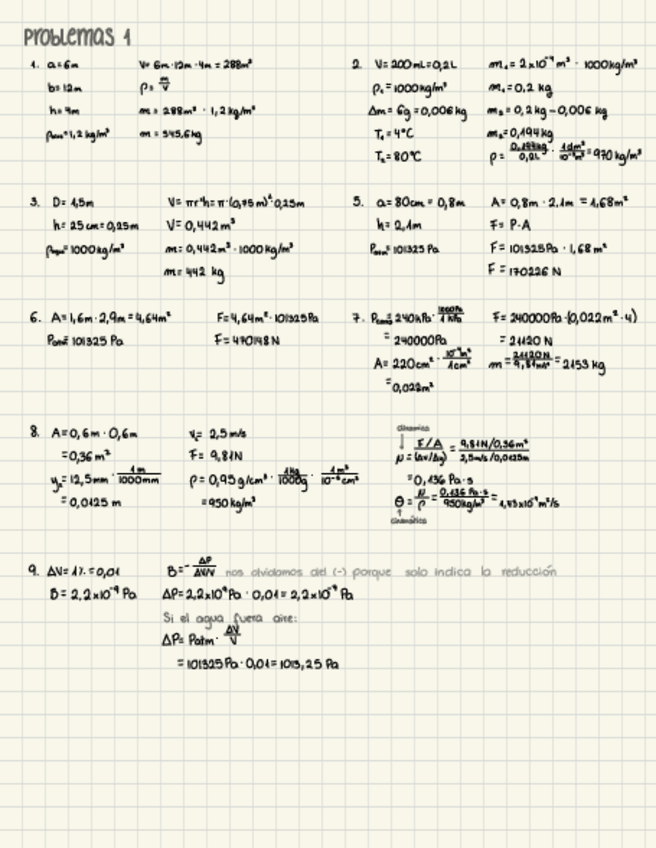 Problemas 1
1. a=6m
b=12m
h=4m
ρaire=1,2 kg/m³
V= 6m·12m·4m = 288m³
ρ= m/V
m= 288m³ · 1,2 kg/m³
m= 345,6kg
2. V=200mL=0,2L
ρ₁=1000kg/m³
Δm= 6g=0,006kg
T₁=4°C
T₂=80°C
m₁= 2x10⁻⁴m³ · 1000kg/m³
m₁=0,2 kg
m₂=0,2kg-0,006 kg
m₂=0,194kg
ρ= 0,194kg/0,2L · 1dm³/10⁻³m³ =970 kg/m³
3. D= 1,5m
h= 25cm=0,25m
ρagua=1000kg/m³
V= πr²h=π·(0,75m)²·0,25m
V=0,442m³
m=0,442m³·1000kg/m³
m=442 kg
5. a=80cm= 0,8m
h=2,1m
Patm=101325 Pa
A=0,8m·2,1m = 1,68m²
F= P·A
F=101325Pa·1,68 m²
F=170226 N
6. A=1,6m·2,9m=4,64m²
Patm=101325 Pa
F=4,64m²·101325Pa
F=470148 N
7. Pman=240kPa· 1000Pa/1 kPa
= 240000Pa
A=220cm²· 10⁻⁴m²/1cm²
=0,022m²
F=240000Pa·(0,022m²·4)
=21120 N
m= 21120N/9,81m/s² =2153 kg
8. A=0,6m·0,6m
=0,36m²
y₂=12,5mm· 1m/1000mm
=0,0125 m
v₂= 2,5m/s
F= 9,81N
ρ=0,95g/cm³· 1kg/1000g · 1cm³/10⁻⁶m³
=950kg/m³
dinámica
↓
μ= F/A/(Δv/Δy) = 9,81N/0,36m²/2,5m/s /0,0125m
=0,136 Pa·s
θ= μ/ρ = 0,136 Pa·s/950kg/m³ = 1,43x10⁻⁴m²/s
↑
cinemática
9. ΔV=1%=0,01
B= 2,2x10⁻⁹ Pa
B=- ΔP/ΔV/V nos olvidamos del (-) porque solo indica la reducción
ΔP=2,2x10⁹Pa·0,01=2,2x10⁻⁹Pa
Si el agua fuera aire:
ΔP=Patm· ΔV/V
=101325Pa·0,01=1013,25 Pa